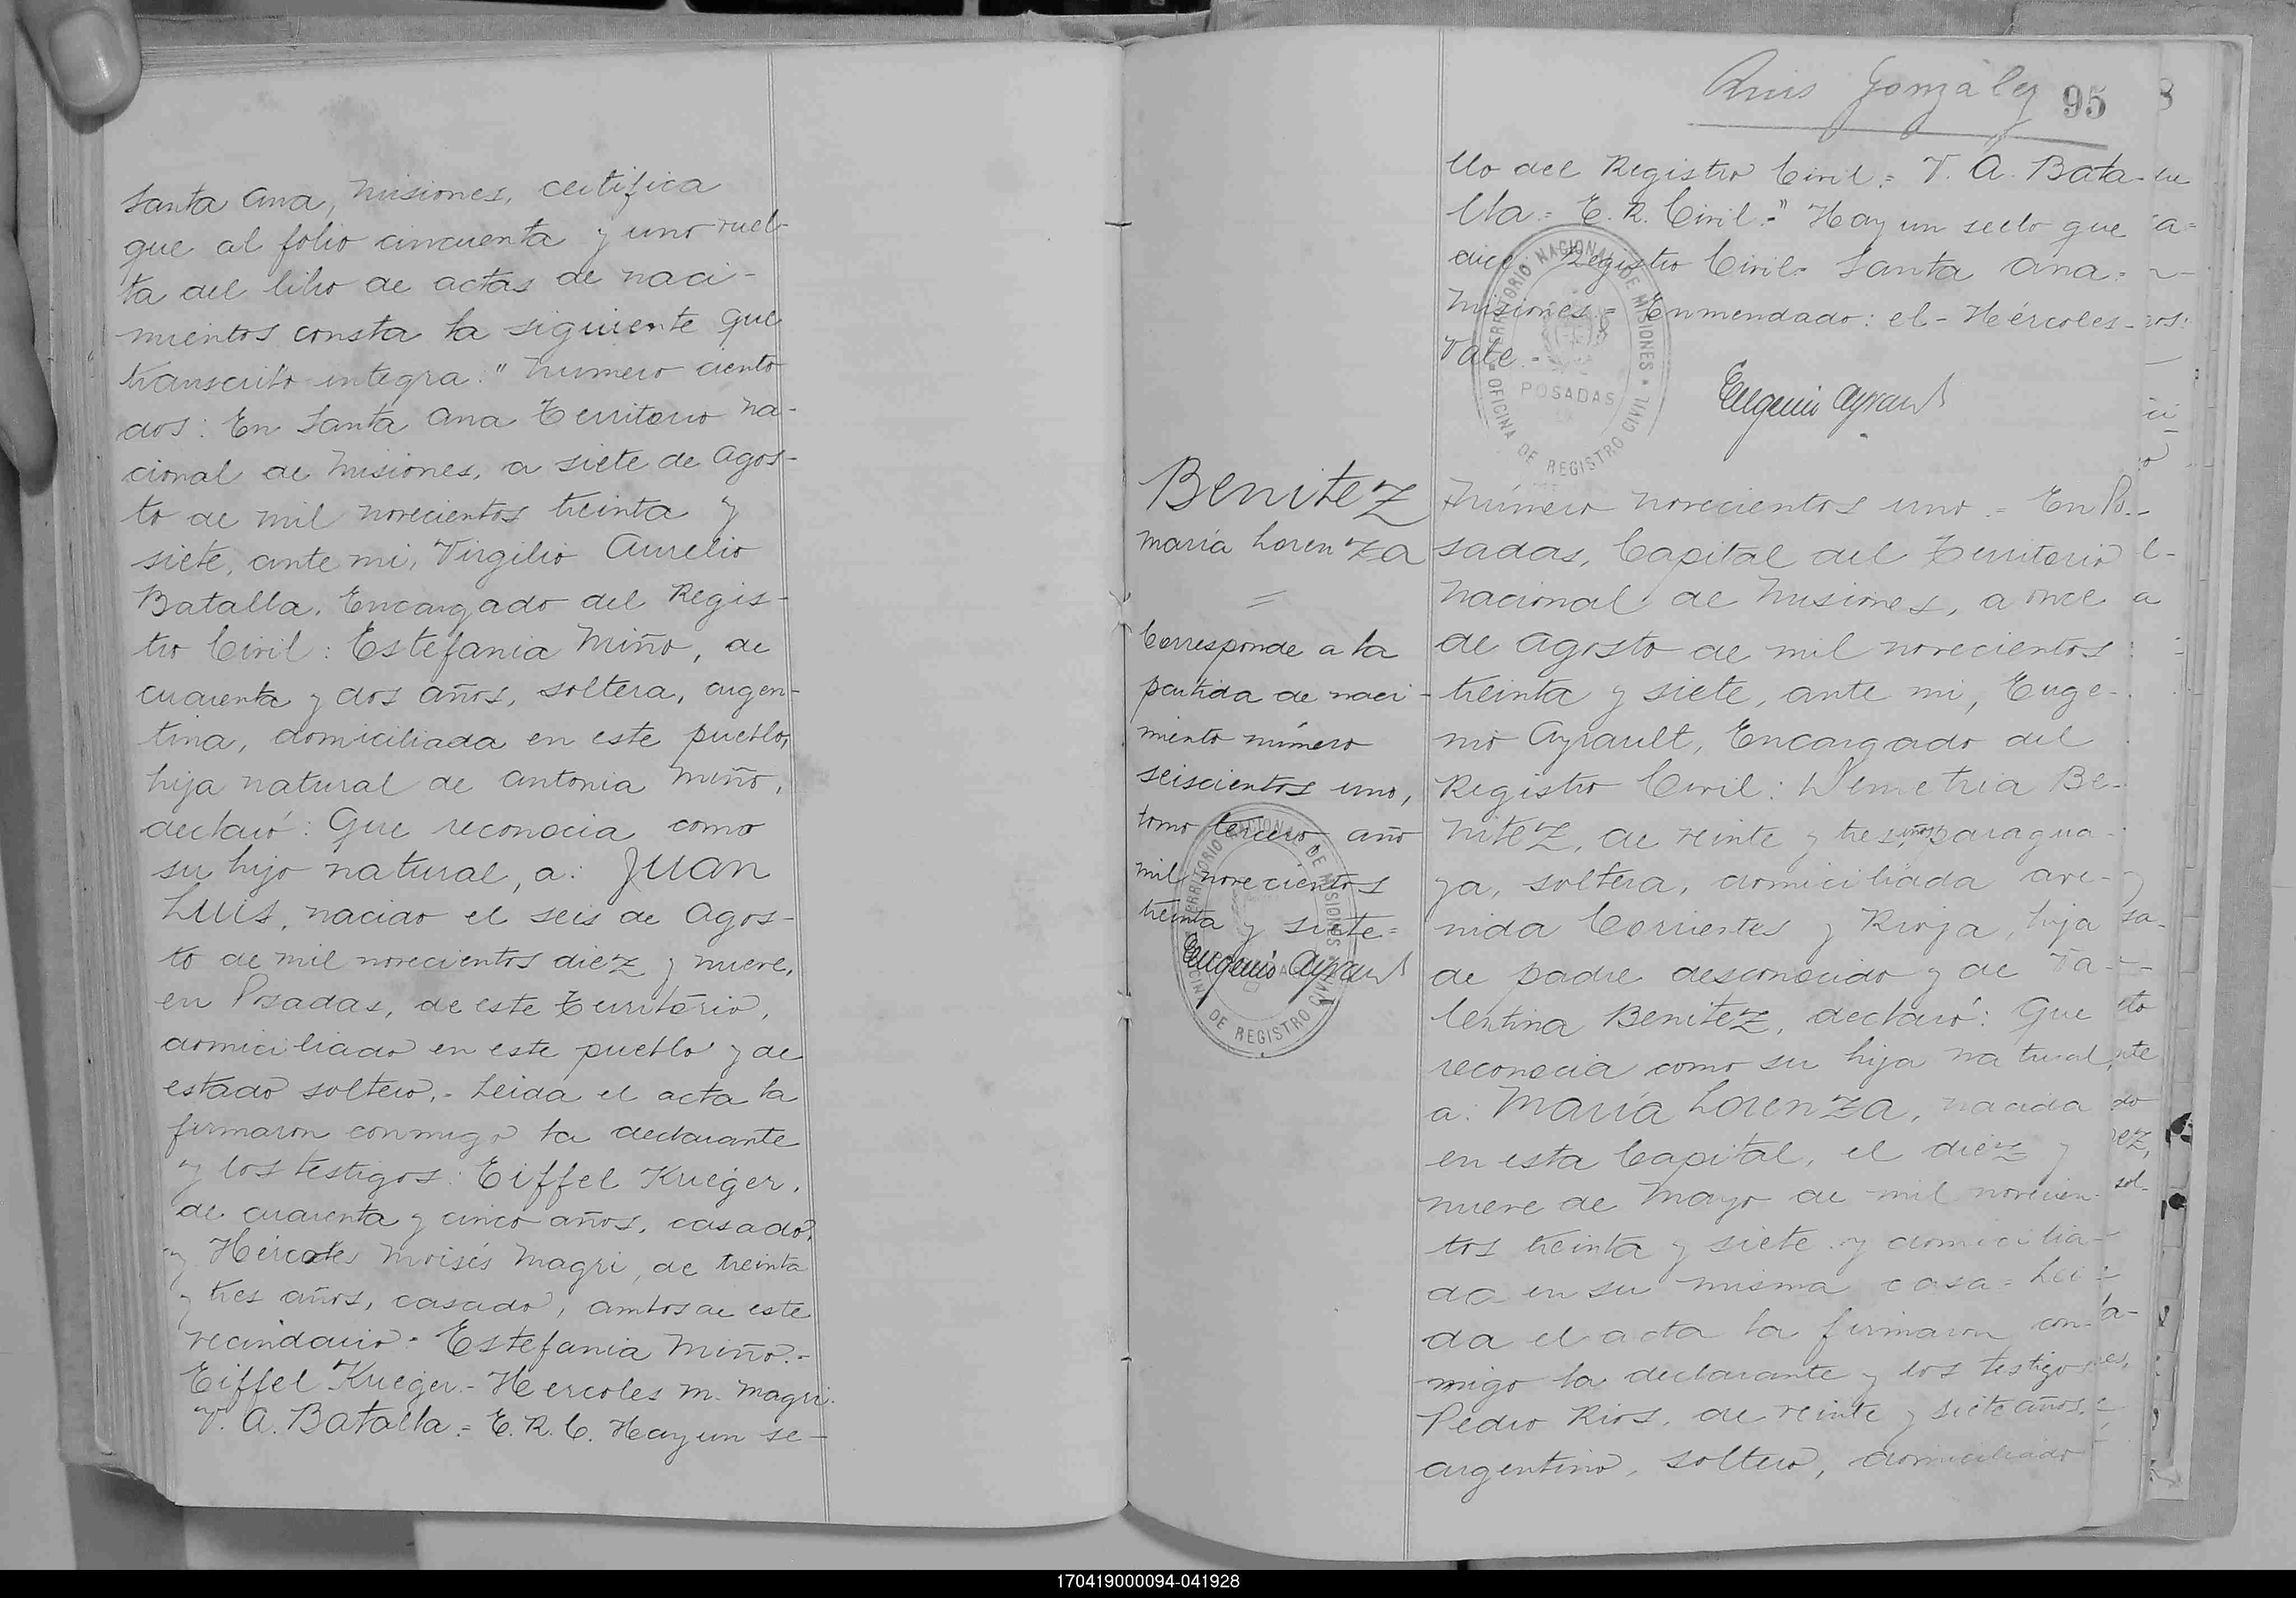 Santa Ana, Misiones, certifica
que al folio cincuenta y uno vuel-
ta del libro de actas de naci-
mientos consta la siguiente que
transcrito integra: "Número ciento
dos: En Santa Ana Territorio Na-
cional de Misiones, a siete de Agos-
to de mil novecientos treinta y
siete, ante mi, Virgilio Aurelio
Batalla, Encargado del Regis-
tro Civil: Estefania Miño, de
cuarenta y dos años, soltera, argen-
tina, domiciliada en este pueblo,
hija natural de Antonia Miño,
declaró: Que reconocia como
su hijo natural, a: Juan
Luis, nacido el seis de Agos-
to de mil novecientos diez y nueve,
en Posadas, de este Territorio,
domiciliado en este pueblo y de
estado soltero.- Leida el acta la
firmaron conmigo la declarante
y los testigos: Eiffel Krieger,
de cuarenta y cinco años, casado,
y Hércoles Moisés Magri, de treinta
y tres años, casado, ambos de este
vecindario.- Estefania Miño.-
Eiffel Krieger.- Hercoles M. Magri.
V. A. Batalla.= E. R. C. Hay un se-
González 95
llo del Registro Civil.= V. A. Bata-
lla.= E. R. Civil.-" Hay un sello que
dice: Registro Civil- Santa Ana-
Misiones.= Enmendado: el- Hércoles-
Vale.-
TERRITORIO NACIONAL DE MISIONES
POSADAS
OFICINA DE REGISTRO CIVIL
Eugenio Ayrault
Benitez
María Lorenza
=
Corresponde a la
partida de naci-
miento número
seiscientos uno,
tomo tercero, año
mil novecientos
treinta y siete=
Eugenio Ayrault
TERRITORIO NACIONAL DE MISIONES
OFICINA DE REGISTRO CIVIL
Número novecientos uno.= En Po-
sadas, Capital del Territorio
Nacional de Misiones, a once
de Agosto de mil novecientos
treinta y siete, ante mi, Euge-
nio Ayrault, Encargado del
Registro Civil: Demetria Be-
nitez, de veinte y tres, años paragua-
ya, soltera, domiciliada ave-
nida Corrientes y Rioja, hija
de padre desconocido y de Va-
lentina Benitez, declaró: Que
reconocia como su hija natural,
a: María Lorenza, nacida
en esta Capital, el diez y
nueve de Mayo de mil novecien-
tos treinta y siete y domicilia-
da en su misma casa= Lei-
da el acta la firmaron con-
migo la declarante y los testigos
Pedro Rios, de veinte y siete años,
argentino, soltero, domiciliado
170419000094-041928